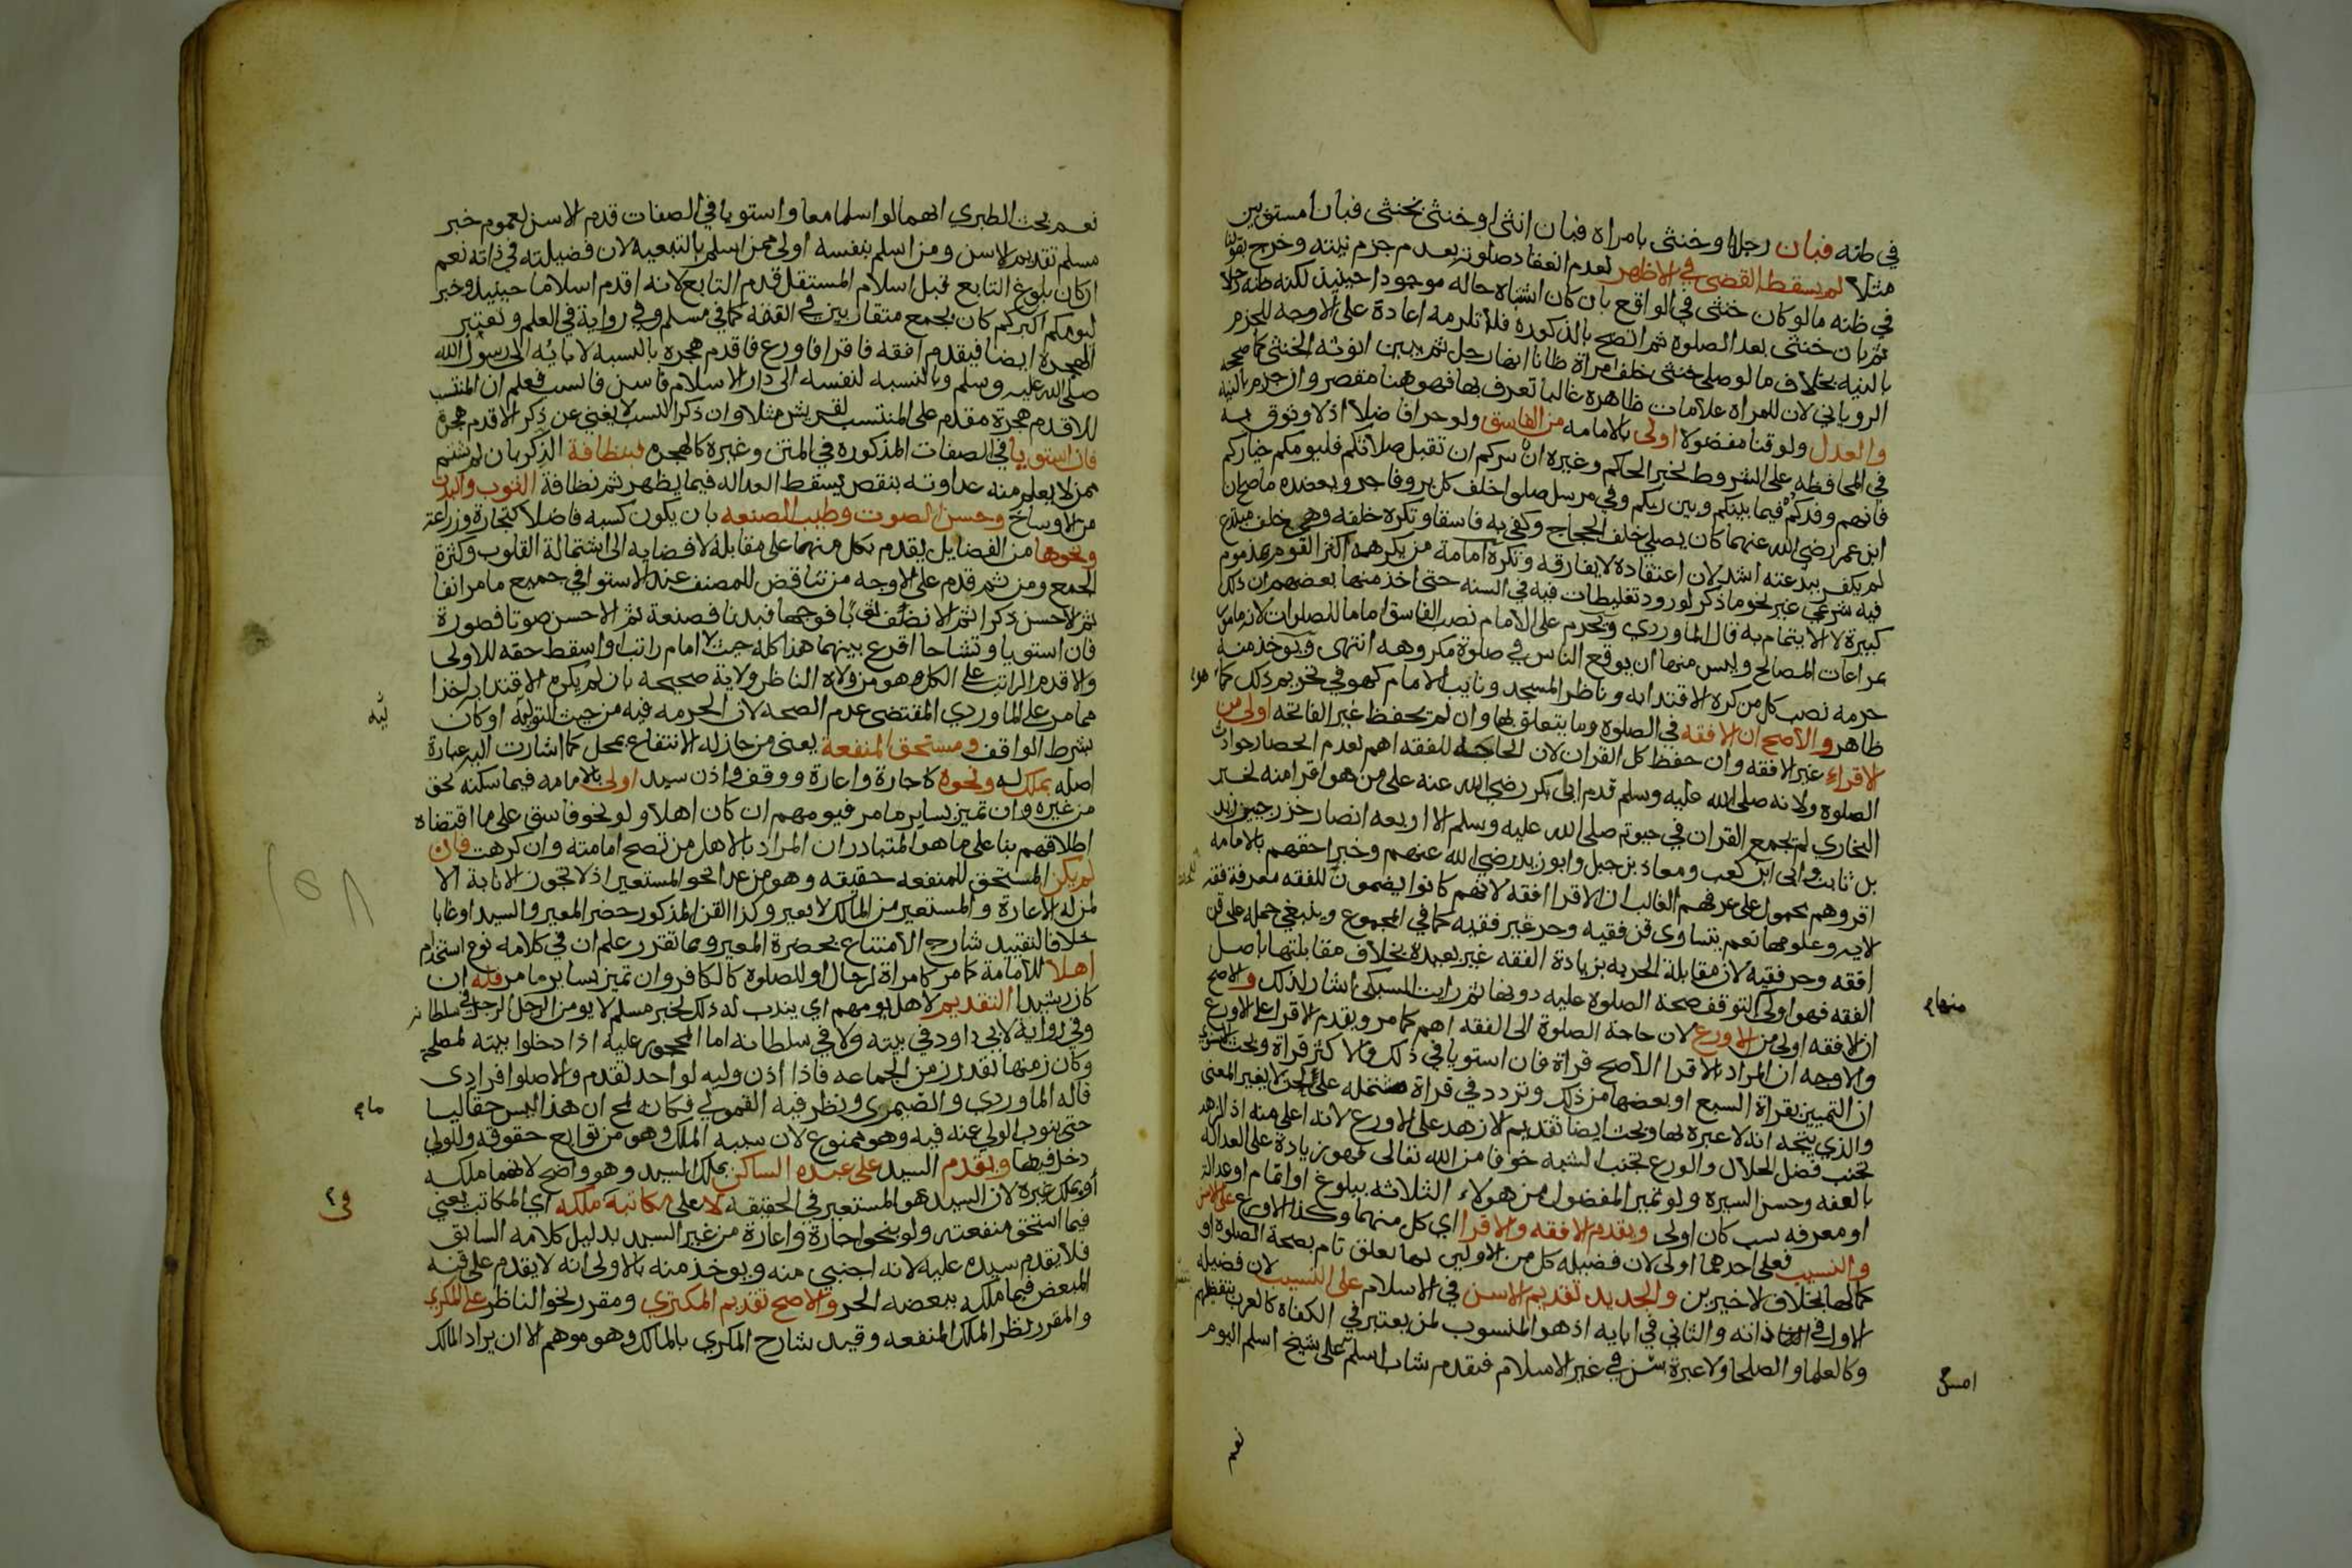 في ظنه فبان رجلا او خنثى بامراه فبان انثى او خنثى بخنثى فبانا مستويين
مثلا لم يسقط القضى في الاظهر لعدم انعقاد صلوته بعدم جزم نيته وخرج بقولنا
في ظنه ما لو كان خنثى في الواقع بان كان اشتباه حاله موجودا حينيذ لكنه ظنه رجلا
ثم بان خنثى بعد الصلوة ثم اتضح بالذكورة فلا تلزمه اعادة على الاوجه للجزم
بالنيه بخلاف ما لو صلى خنثى خلف امراة ظانا انها رجل ثم تبين انوثه الخنثى كما صححه
الروياني لان للمراة علامات ظاهره غالبا تعرف بها فهو هنا مقصر وان جزم بالنية
والعدل ولو قنا مفضولا اولى بالامامه من الفاسق ولو حرا فاضلا اذ لا وثوق به
في المحافظه على الشروط لخبر الحاكم وغيره ان سركم ان تقبل صلاتكم فليومكم خياركم
فانهم وفدكم فيما بينكم وبين ربكم وفي مرسل صلوا خلف كل بر وفاجر ويعضده ما صح ان
ابن عمر رضي الله عنهما كان يصلي خلف الحجاج وكفى به فاسقا وتكره خلفه وهي خلف مبتدع
لم يكفر ببدعته اشد لان اعتقاده لا يفارقه وتكره امامة من يكرهه اكثر القوم لمذموم
فيه شرعي غير نحو ما ذكر لورود تغليظات فيه في السنه حتى اخذ منها بعضهم ان ذلك
كبيرة لا الايتمام به قال الماوردي ويحرم على الامام نصب الفاسق اماما للصلوات لانه مامور
بمراعات المصالح وليس منها ان يوقع الناس في صلوة مكروهه انتهى ويوخذ منه
حرمة نصب كل من كره الاقتدا به وناظر المسجد ونايب الامام كهو في تحريم ذلك كما هو
ظاهر والاصح ان الافقه في الصلوة وما يتعلق بها وان لم يحفظ غير الفاتحه اولى من
الاقراء غير الافقه وان حفظ كل القران لان الحاجه للفقه اهم لعدم انحصار حوادث
الصلوة ولانه صلى الله عليه وسلم قدم ابى بكر رضي الله عنه على من هو اقرا منه لخبر
البخاري لم يجمع القران في حيوته صلى الله عليه وسلم الا اربعه انصار خزرجيين زيد
بن ثابت وابى ابن كعب ومعاذ بن جبل وابو زيد رضي الله عنهم وخبر احقهم بالامامه
اقروهم محمول على عرفهم الغالب ان الاقرا افقه لانهم كانوا يضمون للفقه معرفة فقه
لايه وعلومها نعم يتساوى قن فقيه وحر غير فقيه كما في المجموع وينبغي حمله على قن
افقه وحر فقيه لان مقابلة الحريه بزيادة الفقه غير بعيده بخلاف مقابلتها باصل
الفقه فهو اولى لتوقف صحة الصلوة عليه دونها ثم رايت السبكي اشار لذلك والاصح
ان الافقه اولى من الاورع لان حاجة الصلوة الى الفقه اهم كما مر ويقدم الاقرا على الاورع
والاوجه ان المراد بالاقرا الاصح قراة فان استويا في ذلك فالاكثر قراة وبحث
ان التميز بقراة السبع او بعضها من ذلك وتردد في قراة مشتمله على لحن لا يغير المعنى
والذي يتجه انه لا عبرة بها وبحث ايضا تقديم الازهد على الاورع لانه اعلى منه اذ الزهد
تجنب فضل الحلال والورع تجنب الشبه خوفا من الله تعالى فهو زيادة على العداله
بالعفه وحسن السيره ولو تميز المفضول من هولاء الثلاثه ببلوغ او اتمام او عدالة
او معرفه نسب كان اولى ويقدم الافقه والاقرا اي كل منهما وكذا الاورع على الاسن
والنسيب فعلى احدهما اولى لان فضيله كل من الاولين لها تعلق تام بصحة الصلوة او
كمالها بخلاف الاخيرين والجديد تقديم الاسن في الاسلام على النسيب لان فضيلة
الاول في ذاته والثاني في ابايه اذ هو المنسوب لمن يعتبر في الكفاة كالعرب
وكالعلما والصلحا ولا عبرة بسن في غير الاسلام فيقدم شاب اسلم على شيخ اسلم اليوم
منهاج
امس
نعم
نعم بحث الطبري انهما لو اسلما معا واستويا في الصفات قدم الاسن لعموم خبر
مسلم تقديم الاسن ومن اسلم بنفسه اولى ممن اسلم بالتبعيه لان فضيلته في ذاته نعم
ان كان بلوغ التابع قبل اسلام المستقل قدم التابع لانه اقدم اسلاما حينيذ وخبر
ليومكم اكبركم كان بجمع متقاربين في الفقه كما في مسلم وفي رواية في العلم وتعتبر
الهجرة ايضا فيقدم افقه فاقرا فاورع فاقدم هجره بالنسبه لابايه الى رسول الله
صلى الله عليه وسلم وبالنسبه لنفسه الى دار الاسلام فاسن فانسب فعلم ان المنتسب
للاقدم هجرة مقدم على المنتسب لقريش مثلا وان ذكر النسب لا يغني عن ذكر الاقدم هجرة
فان استويا في الصفات المذكوره في المتن وغيره كالهجره فبنظافة الذكر بان لم يشتم
ممن لا يعلم منه عداوته بنقص يسقط العداله فيما يظهر ثم نظافة الثوب والبدن
من الاوساخ وحسن الصوت وطيب الصنعه بان يكون كسبه فاضلا كتجارة وزراعة
ونحوها من الفضايل يقدم بكل منهما على مقابله لافضايه الى اشتمالة القلوب وكثرة
الجمع ومن ثم قدم على الاوجه من تناقض للمصنف عند الاستوا في جميع ما مر انفا
ثم الاحسن ذكرا ثم الانظف ثوبا فوجها فبدنا فصنعة ثم الاحسن صوتا فصورة
فان استويا وتشاحا اقرع بينهما هذا كله حيث لا امام راتب او اسقط حقه للاولى
والا قدم الراتب على الكل وهو من ولاه الناظر ولاية صحيحه بان لم يكره الاقتدا به اخذا
مما مر على الماوردي المقتضى عدم الصحه لان الحرمه فيه من حيث التولية او كان
بشرط الواقف ومستحق المنفعة يعني من جاز له الانتفاع بمحل كما اشارت اليه عبارة
اصله بملك له ونحوه كاجارة واعارة ووقف واذن سيد اولى بالامامه فيما سكنه بحق
من غيره وان تميز بساير ما مر فيومهم ان كان اهلا ولو نحو فاسق على ما اقتضاه
اطلاقهم بنا على ما هو المتبادر ان المراد بالاهل من تصح امامته وان كرهت فان
لم يكن المستحق للمنفعه حقيقه وهو من عدا نحو المستعير اذ لا تجوز الانابة الا
لمن له الاعارة والمستعير من المالك لا يعير وكذا القن المذكور حضر المعير والسيد او غابا
خلافا لتقييد شارح الامتناع بحضرة المعير وبما تقرر علم ان في كلامه نوع استخدام
اهلا للامامة كما مر كامراة لرجال او للصلوة كالكافر وان تميز بساير ما مر فله ان
كان رشيدا التقديم لاهل يومهم اي يندب له ذلك لخبر مسلم لا يومن الرجل الرجل في سلطانه
وفي رواية لابي داود في بيته ولا في سلطانه اما المحجور عليه اذا دخلوا بيته لمصلحته
وكان زمنها بقدر زمن الجماعه فاذا اذن وليه لواحد تقدم والا صلوا فرادى
قاله الماوردي والصيمري ونظر فيه القمولي فكانه لمح ان هذا ليس حقا ليا
حتى ينوب الولي عنه فيه وهو ممنوع لان سببه الملك وهو من توابع حقوقه وللولي
دخل فيها ويقدم السيد على عبده الساكن بملك السيد وهو واضح لانهما ملكه
او بملك غيره لان السيد هو المستعير في الحقيقه لا على مكاتبه ملكه اي المكاتب يعني
فيما استحق منفعته ولو بنحو اجارة واعارة من غير السيد بدليل كلامه السابق
فلا يقدم سيده عليه لانه اجنبي منه ويوخذ منه بالاولى انه لا يقدم على قنه
المبعض فيما ملكه ببعضه الحر والاصح تقديم المكتري ومقرر نحو الناظر على المكري
والمقرر نظرا لملك المنفعه وقيد شارح المكري بالمالك وهو موهم الا ان يراد المالك
١٥٨